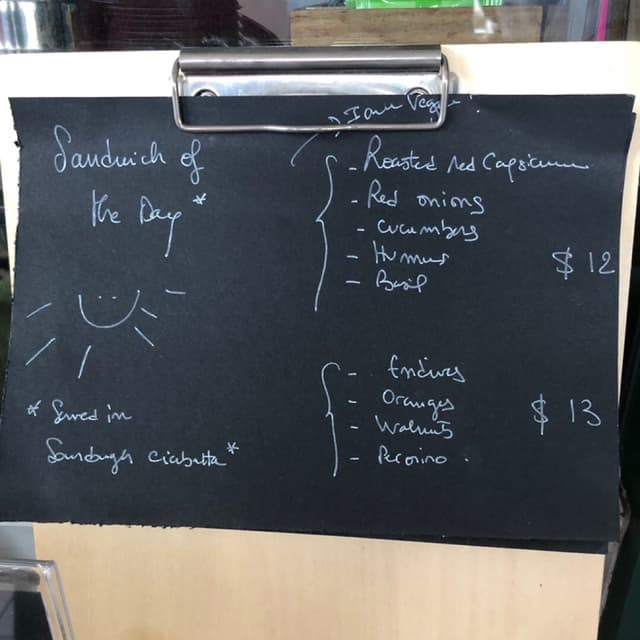 Sandwich of
the Day *
* Served in
Sourdough ciabatta *
I am Veggie!
- Roasted red Capsicum
- Red onions
- cucumbers
- Humus
- Basil
$ 12
- Endives
- Oranges
- Walnuts
- Pecorino
$ 13